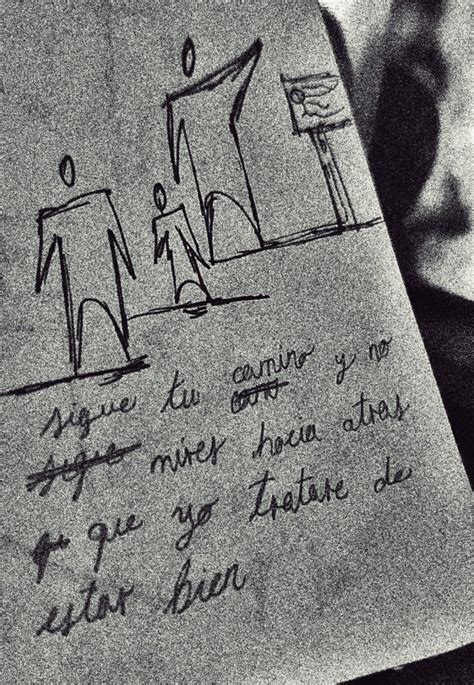 sigue tu camino y no
mires hacia atras
que yo tratare de
estar bien